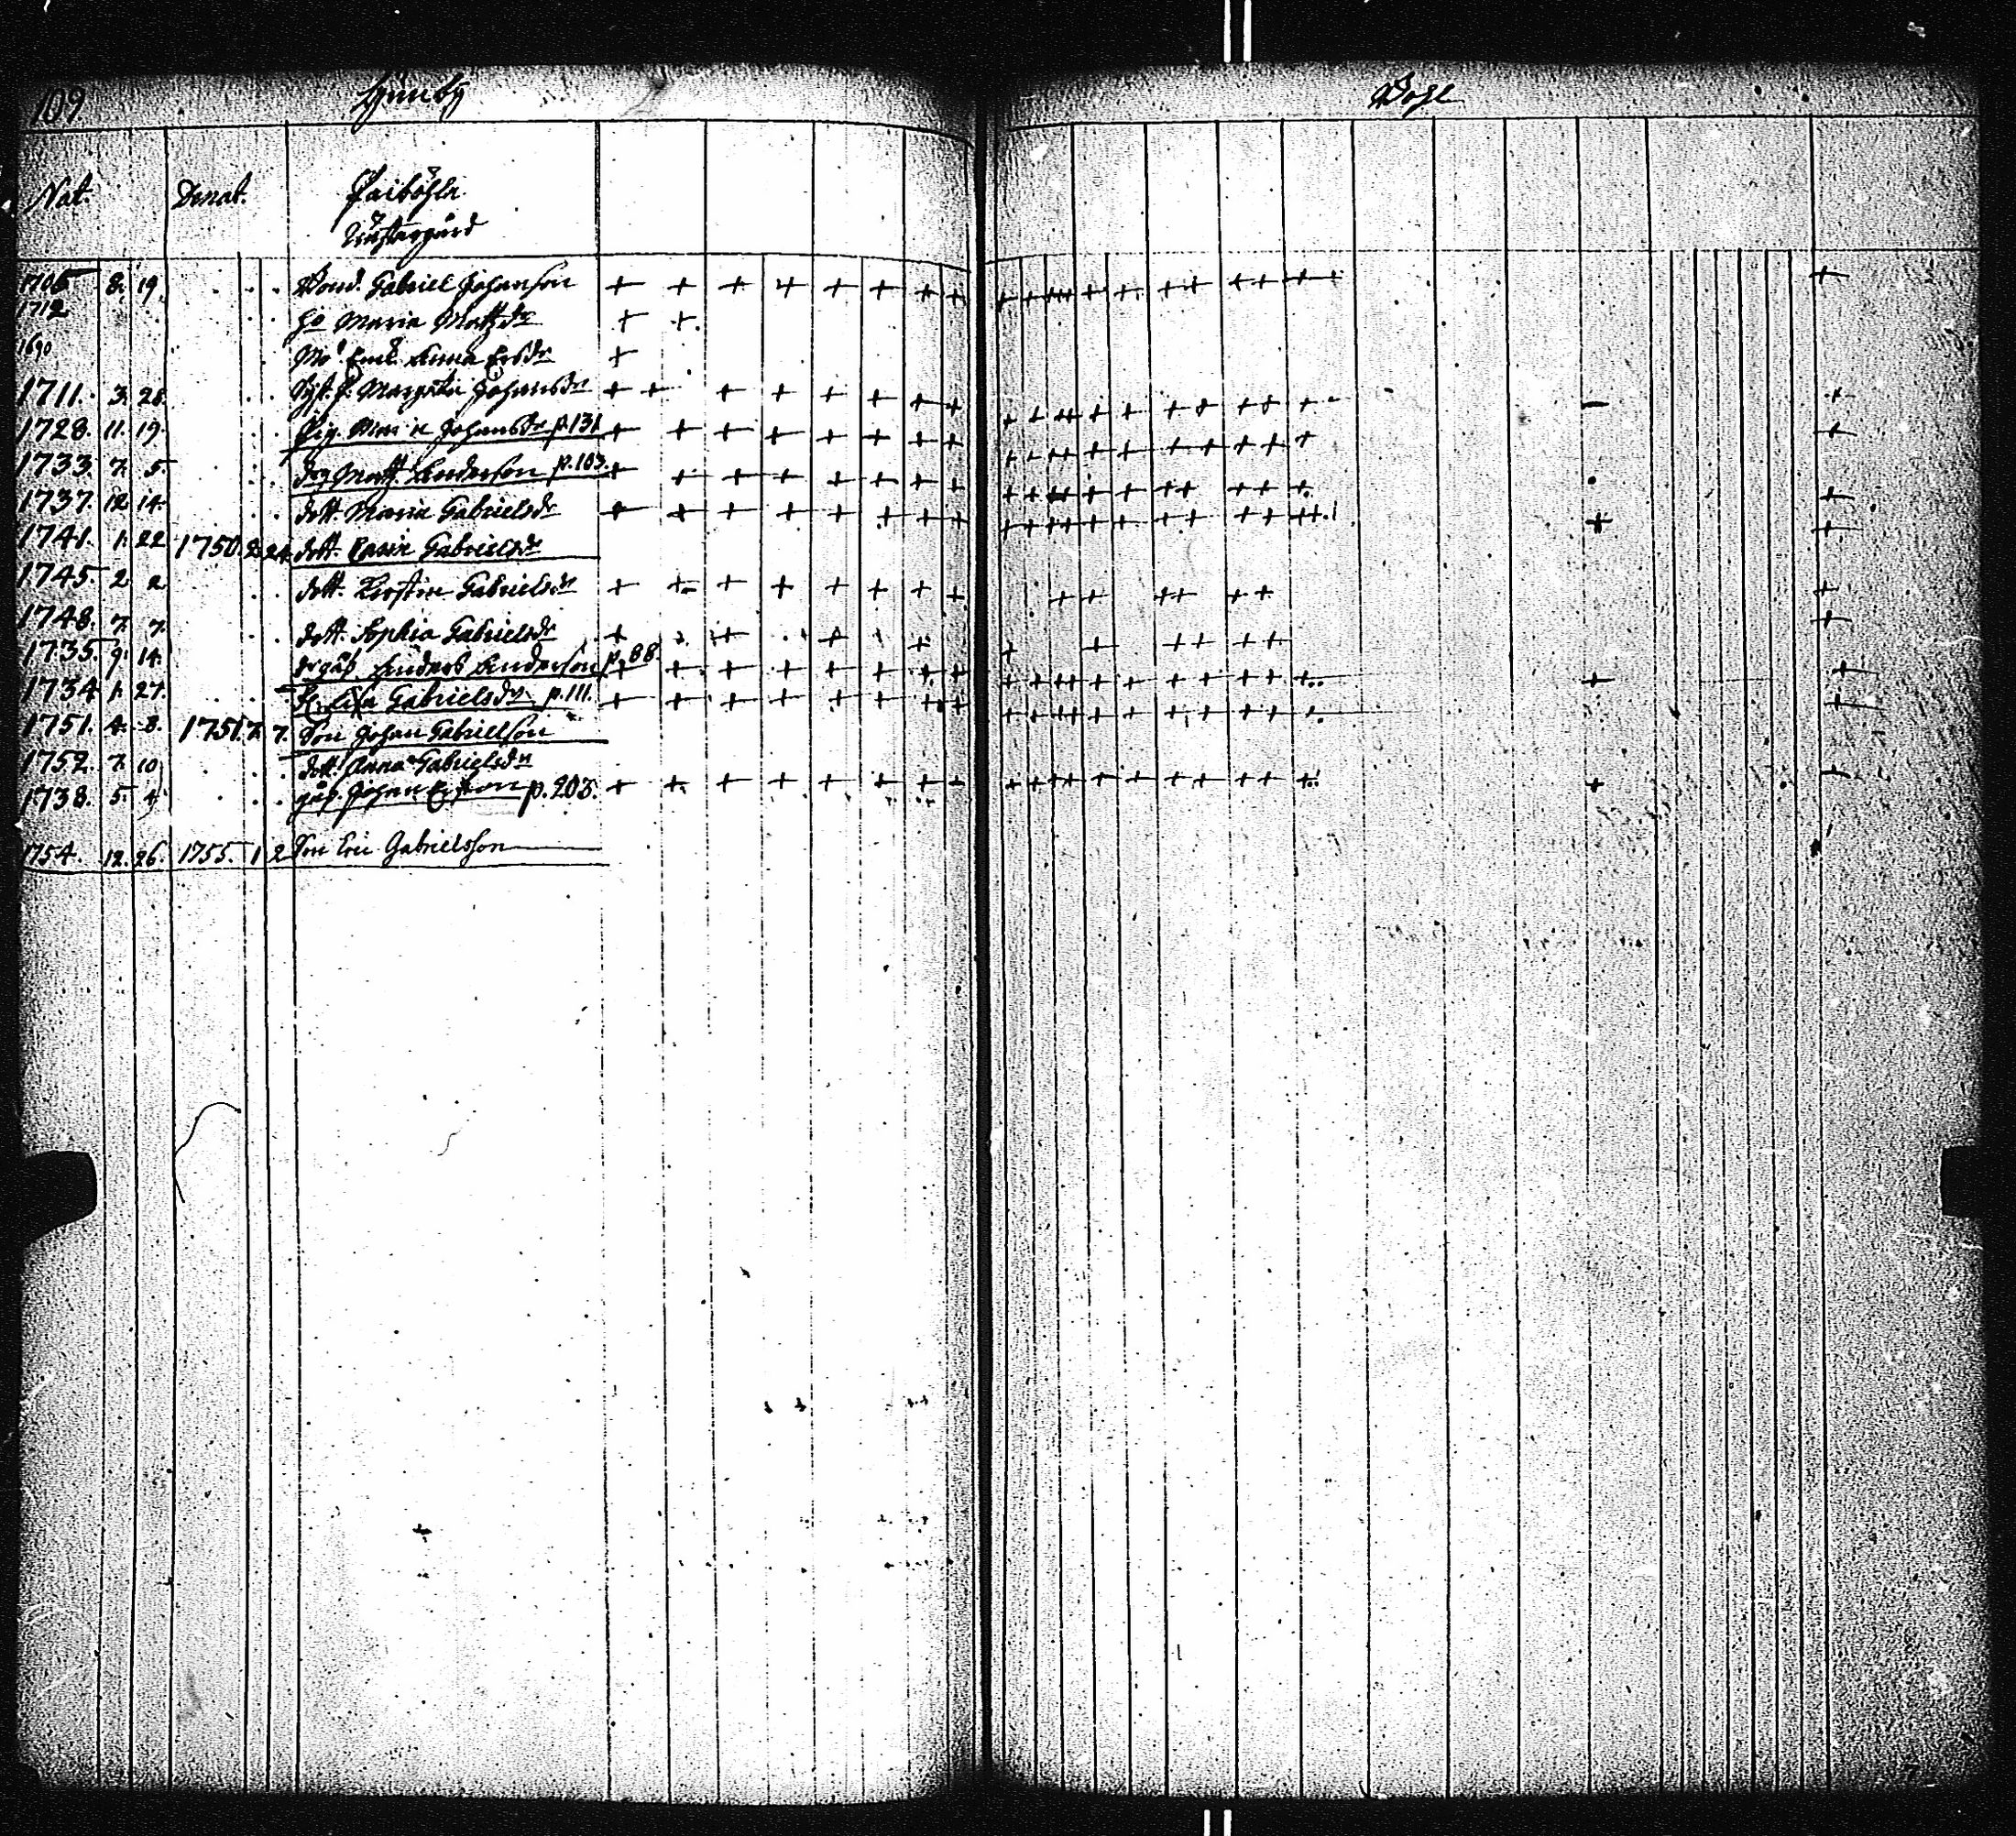 109
Wogl
Nat. Denat.
1706 8. 19. Bond. Gabriell Johanson
1712 ho Maria Mattzdr
1690 Mod. Enk. Anna Ersdr
1711. 3. 28. Syst. h. Margeta Johansdr
1728. 11. 19. Pig. Maria Johansdr p.131
1733. 7. 5 drg Matt. Anderson p.103.
1737. 12. 14. dott. Maria Gabrielsdr
1741. 1. 22 1750. 2. 24. dott. Carin Gabrielsdr
1745. 2. 2 dott. Kirstin Gabrielsdr
1748. 7. 7. dott. Sophia Gabrielsdr
1735. 9. 14. Anders Anderson p. 88.
1734 1. 27. Lisa Gabrielsdr p.111.
1751. 4. 8. 1751. 7. 7. Son Johan Gabrielson
1752. 7. 10 dott. Anna Gabrielsdr
1738. 5. 4 Johan Erson p.203.
1754. 12. 26. 1755. 1 2 Son Eric Gabrielsson